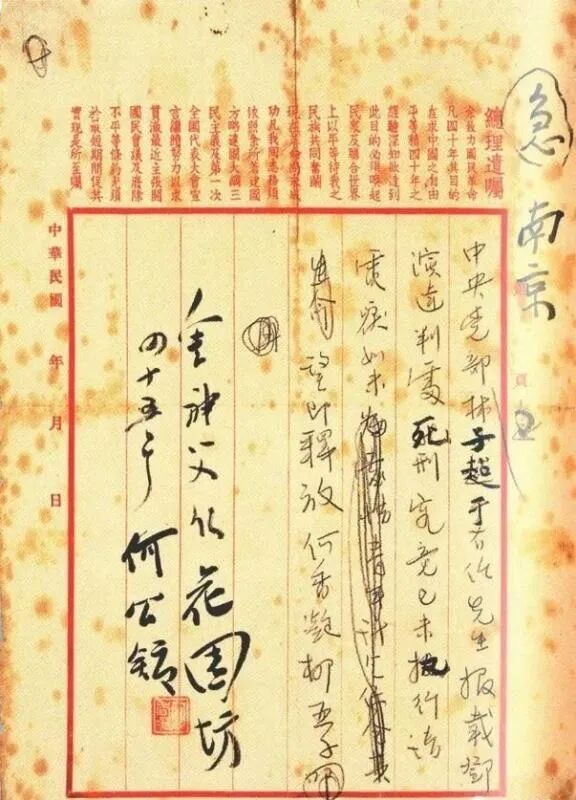 急 南京
總理遺囑
余致力國民革命
凡四十年其目的
在求中國之自由
平等積四十年之
經驗深知欲達到
此目的必須喚起
民眾及聯合世界
上以平等待我之
民族共同奮鬭
現在革命尚未成
功凡我同志務須
依照余所著建國
方略建國大綱三
民主義及第一次
全國代表大會宣
言繼續努力以求
貫澈最近主張開
國民會議及廢除
不平等條約尤須
於最短期間促其
實現是所至囑
中央党部林子超于右任先生報載鄧
演達判處死刑究竟已未执行請
電覆如未
望即釋放何香凝柳亞子叩
金神父路花園坊
四十五号 何公館
中華民國 年 月 日